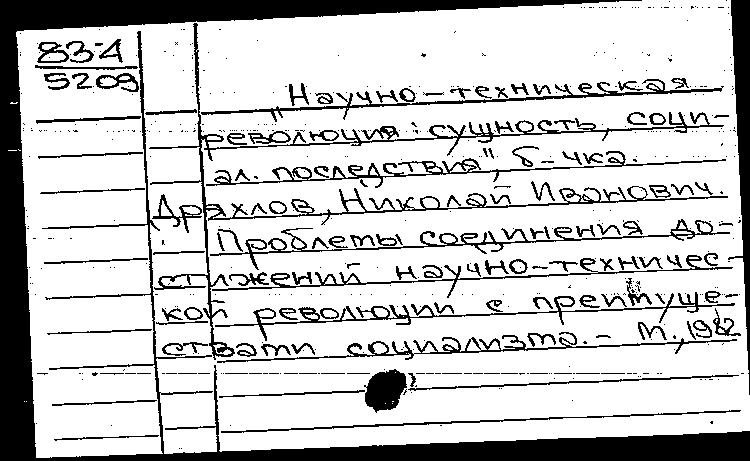 83-4
5209
"Научно-техническая
революция: сущность, соци-
ал. последствия", б-чка.
Дряхлов, Николай Иванович.
Проблемы соединения до-
стижений научно-техничес-
кой революции с преимуще-
ствами социализма. - М., 1982